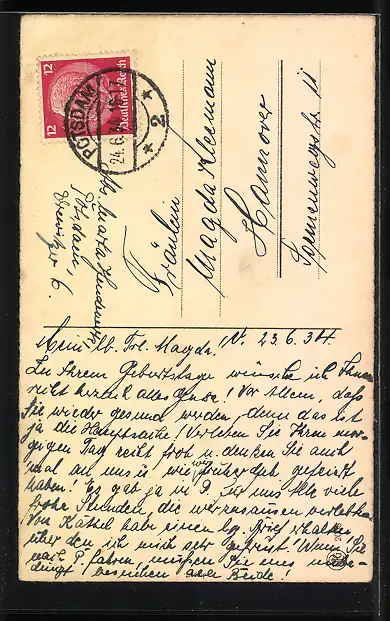 12
12
Deutsches Reich
POTSDAM
24.6.34
2
Abs. Marta
Potsdam,
6.
Fräulein
Magda Kleemann
Hannover
11
Mein lb. Frl. Magda! N. 23.6.34
Zu Ihrem Geburtstage wünsche ich Ihnen
recht herzlich alles Gute! Vor Allem, daß
Sie wieder gesund werden, denn das ist
ja die Hauptsache! Verleben Sie Ihren mor-
gigen Tag recht froh u. denken Sie auch
mal an uns u. wie wir früher dort gefeiert
haben! Es gab ja in P. für uns Alle viele
frohe Stunden, die wir zusammen verlebten.
Von Käthel habe einen lg. Brief erhalten
über den ich mich sehr gefreut! Wenn Sie
nach P. fahren, müssen Sie uns unbe-
dingt besuchen aber Beide!